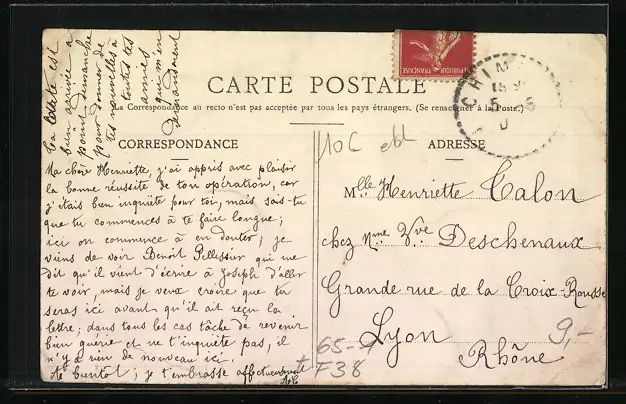 CARTE POSTALE
La Correspondance au recto n'est pas acceptée par tous les pays étrangers. (Se renseigner à la Poste.)
CORRESPONDANCE
ADRESSE
REPUBLIQUE FRANÇAISE
CHIM
La carte est
bien arrivée à
point dimanche
pour donner de
tes nouvelles à
toutes tes
amies
qui m'en
demandaient
Ma chère Henriette, j'ai appris avec plaisir
la bonne réussite de ton opération, car
j'étais bien inquiète pour toi, mais sais-tu
que tu commences à te faire longue;
ici on commence à en douter; je
viens de voir Benoît Pellissier qui me
dit qu'il vient d'écrire à Joseph d'aller
te voir, mais je veux croire que tu
seras ici avant qu'il ait reçu la
lettre; dans tous les cas tâche de revenir
bien guérie et ne t'inquiète pas, il
n'y a rien de nouveau ici.
A bientôt; je t'embrasse affectueusement
10C
Mlle Henriette Calon
chez Mme Vve Deschenaux
Grande rue de la Croix-Rousse
Lyon
Rhône
9,-
65-
F38